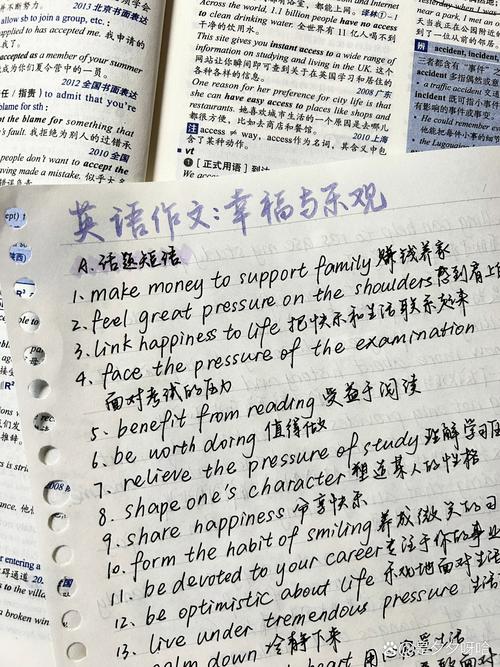 不断努力。
2013 北京书面表达
allow sb to join a group, etc.:
applied to has accepted me. 我申请的
accepted as a member of your summer
成为你们夏令营中的一员。
2012 全国书面表达
to admit that you're
blame for sth:
the blame for something that
's fault. 我拒绝为别人的过错承
2010 全国
people don't want to accept the
having made a mistake. 似乎大多
都能上网。 译林①-1
Across the world, 1.1 billion people have no access
to clean drinking water. 全世界有 11 亿人喝不到
干净的饮用水。
This site gives you instant access to a wide range of
information on studying and living in the UK. 这个
网站让你瞬间即可查到关于在英国学习和居住的
各种各样的信息。 2008 广东
One reason for her preference for city life is that
she can have easy access to places like shops and
restaurants. 她喜欢城市生活的一个原因是去哪儿
都很方便，比如去商店和餐馆。 2010 上海
注 access ≠ way，access作为名词，其含义中包
含了某种动作。
vt
❶ [正式用语]
near a park, I met an
天当我正在公园附近
到了一位从前的邻居
辨 accident, incident,
三者都含有“事件”
accident 多指偶然或意
a traffic accident 交通
incident 既可指小事件
有影响的事件或事变。
He could remember
他能把每件小事的细节
the Lugouqiao Incident
英语作文：幸福与乐观
A. 话题短语
1. make money to support family 赚钱养家
2. feel great pressure on the shoulders 感到肩上的
3. link happiness to life 把快乐和生活联系起来
4. face the pressure of the examination
面对考试的压力
5. benefit from reading 受益于阅读
6. be worth doing 值得做
7. relieve the pressure of study 缓解学习压
8. shape one's character 塑造某人的性格
9. share happiness 分享快乐
10. form the habit of smiling 养成微笑的习
11. be devoted to your career 专注于你的事业
12. be optimistic about life 乐观地面对生活
13. live under tremendous pressure 生活
calm down 冷静下来
heart 用心感受生活